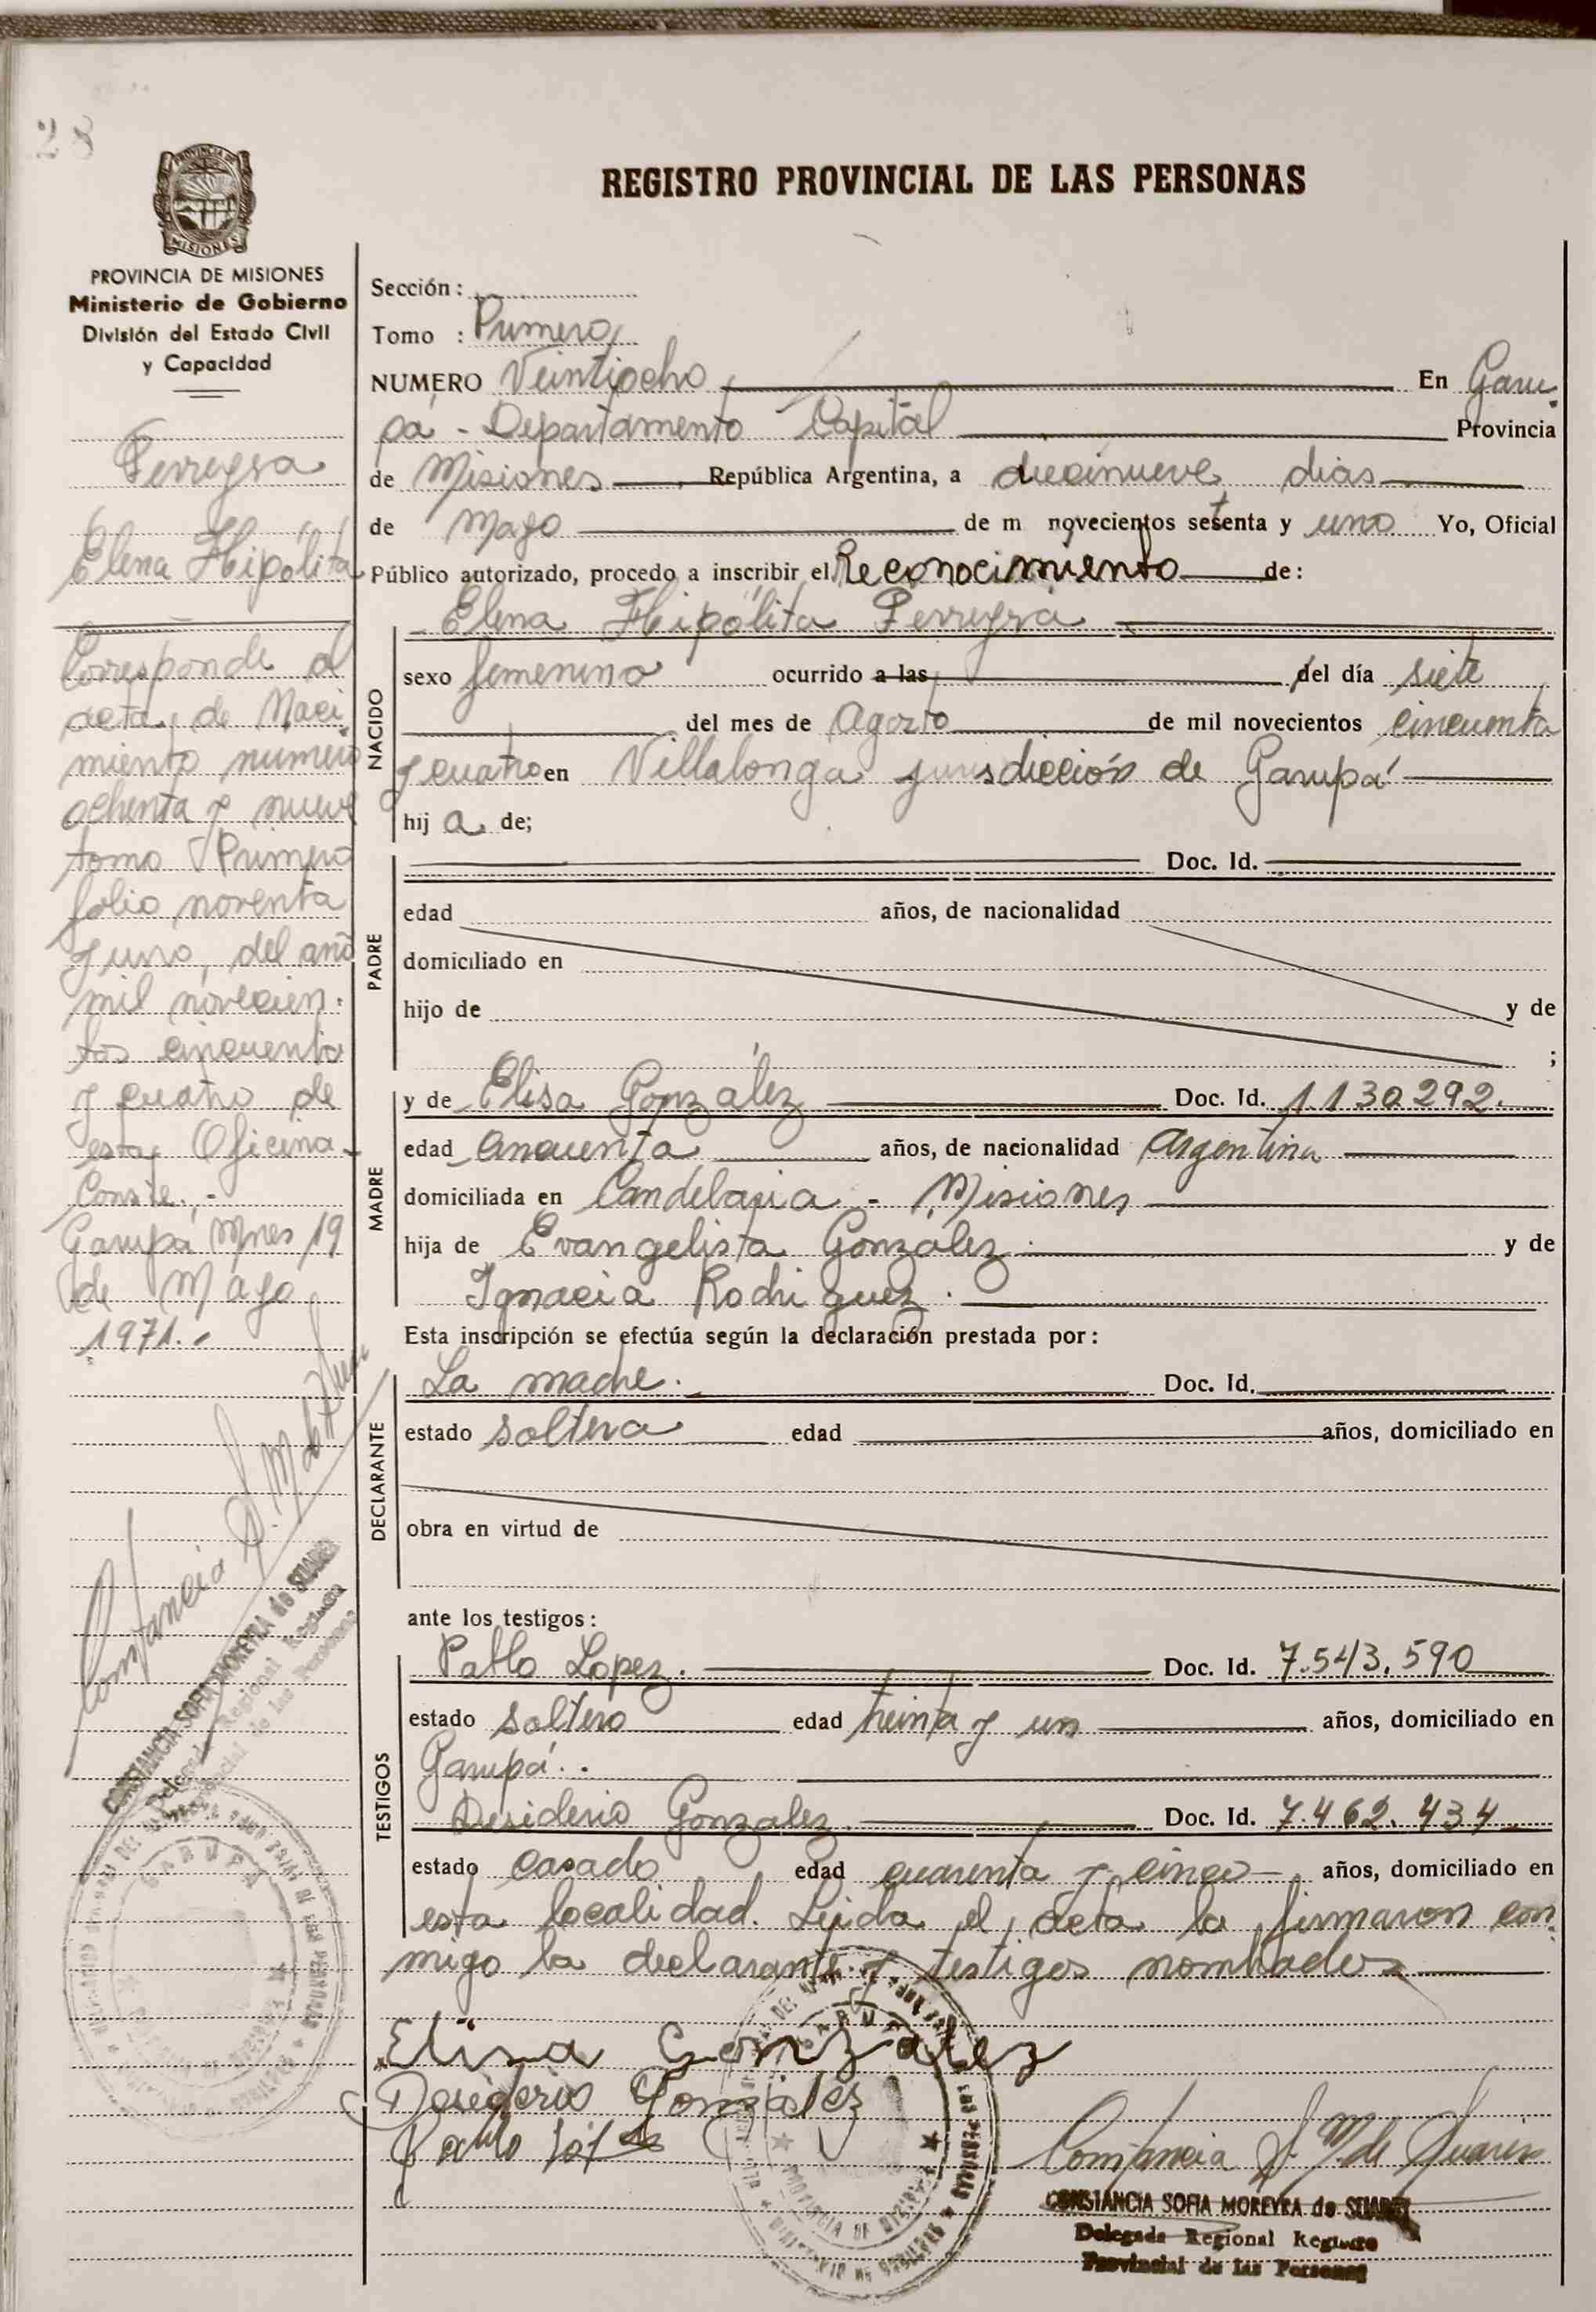 28
PROVINCIA DE
MISIONES
PROVINCIA DE MISIONES
Ministerio de Gobierno
División del Estado Civil
y Capacidad
Ferreyra
Elena Hipólita
Corresponde al
acta de Naci
miento numero
ochenta y nueve
tomo Primero
folio noventa
y uno, del año
mil novecien-
tos cincuenta
y cuatro de
esta Oficina.-
Conste.-
Garupá Mnes 19
de Mayo
1971.-
Constancia S. M. de Suarez
CONSTANCIA SOFIA MOREYRA de SUAREZ
Delegada Regional Registro
Provincial de las Personas
GARUPA
REGISTRO PROVINCIAL DE LAS PERSONAS
Sección :
Tomo : Primero
NUMERO Veintiocho En Garu
pá - Departamento Capital Provincia
de Misiones República Argentina, a diecinueve dias
de Mayo de m novecientos setenta y uno Yo, Oficial
Público autorizado, procedo a inscribir el Reconocimiento de:
Elena Hipólita Ferreyra
NACIDO
sexo femenino ocurrido a las del día siete
del mes de Agosto de mil novecientos cincuenta
y cuatro en Villalonga jurisdicción de Garupá
hij a de;
PADRE
Doc. Id.
edad años, de nacionalidad
domiciliado en
hijo de y de
;
MADRE
y de Elisa González Doc. Id. 1.130.292.
edad cincuenta años, de nacionalidad Argentina
domiciliada en Candelaria - Misiones
hija de Evangelista González y de
Ignacia Rodriguez.
Esta inscripción se efectúa según la declaración prestada por:
DECLARANTE
La madre. Doc. Id.
estado soltera edad años, domiciliado en
obra en virtud de
ante los testigos:
TESTIGOS
Pablo Lopez. Doc. Id. 7.543.590
estado soltero edad treinta y un años, domiciliado en
Garupá..
Desiderio Gonzalez. Doc. Id. 7.462.434
estado casado edad cuarenta y cinco años, domiciliado en
esta localidad. Leida el acta la firmaron con
migo la declarante y testigos nombrados
Elisa Gonzalez
Desiderio Gonzalez
Constancia S. M. de Suarez
CONSTANCIA SOFIA MOREYRA de SUAREZ
Delegada Regional Registro
Provincial de las Personas